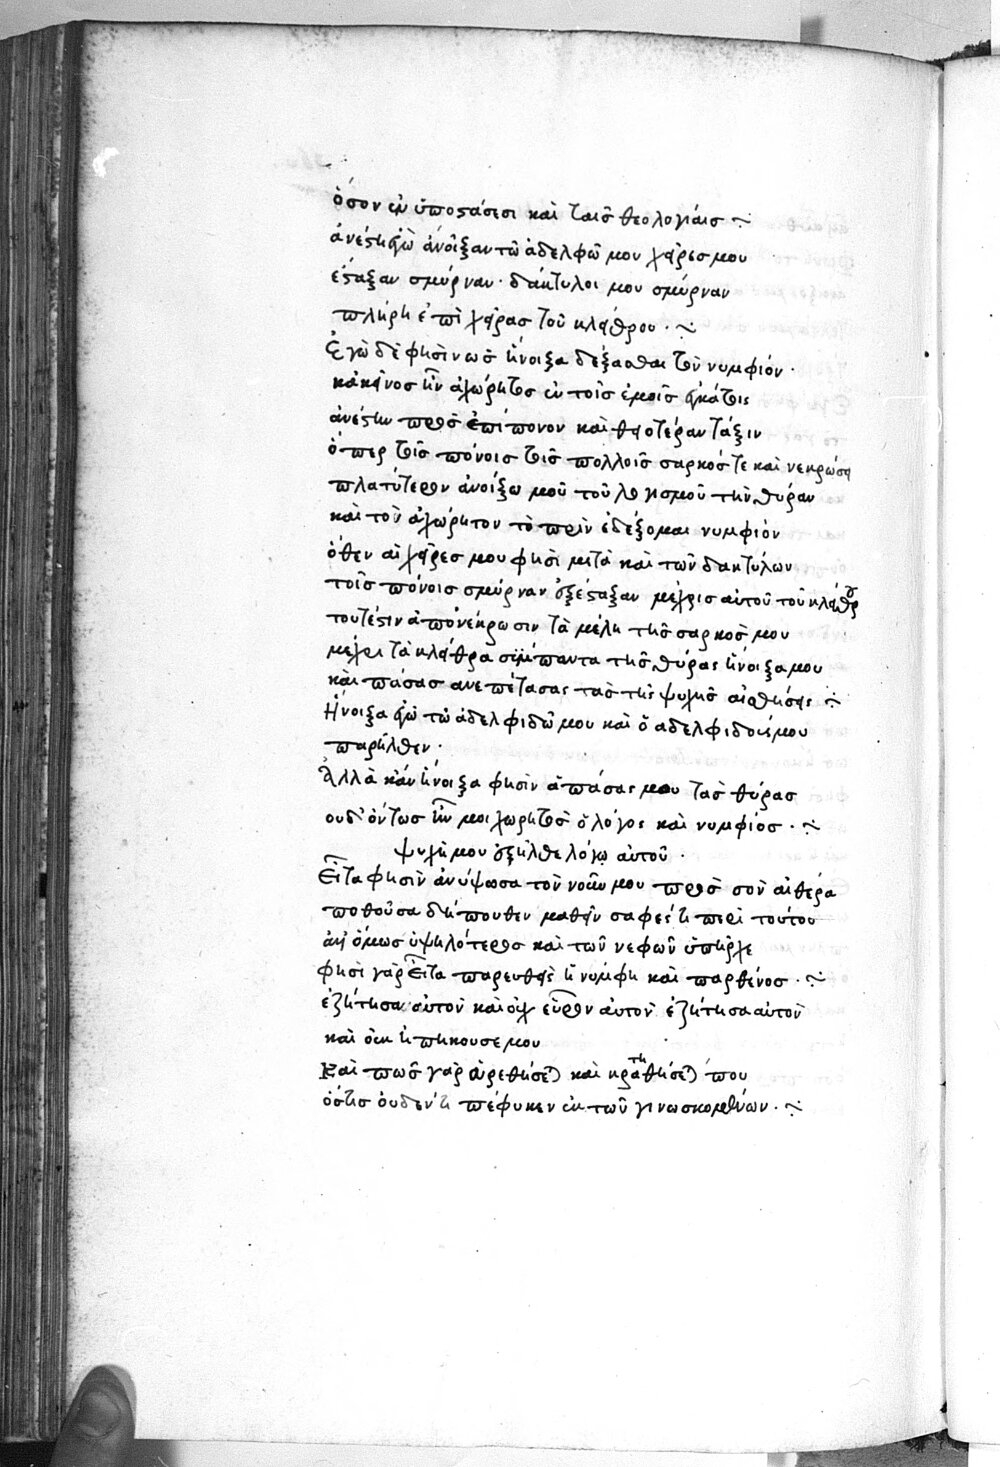 ὅσον ἐν ὑποστάσεσι καὶ ταῖς θεολογίαις ~
ἀνέστην ἐγὼ ἀνοῖξαν τῶ ἀδελφῶ μου χεῖρες μου
ἔσταξαν σμύρναν· δάκτυλοι μου σμύρναν
πλήρη ἐπὶ χεῖρας τοῦ κλείθρου·~
Ἐγὼ δὲ φησὶν ὡς ἤνοιξα δέξασθαι τὸν νυμφίον·
κἀκεῖνος ἦν ἀχώρητος ἐν τοῖς ἐμοῖς ἐγκάτοις
ἀνέστην πρὸς ἐπίπονον καὶ θειοτέραν τάξιν
ὅπερ τοῖς πόνοις τοῖς πολλοῖς σαρκός τε καὶ νεκρώσει
πλατύτερον ἀνοίξω μοῦ τοῦ λογισμοῦ τὴν θύραν
καὶ τὸν ἀχώρητον τὸ πρὶν ἐδέξομαι νυμφίον
ὅθεν αἱ χεῖρες μου φησὶ μετὰ καὶ τῶν δακτύλων
τοῖς πόνοις σμύρναν ἐξέσταξαν μέχρις αὐτοῦ τοῦ κλείθρου
τουτέστιν ἀπονέκρωσιν τὰ μέλη τῆς σαρκός μου
μέχρι τὰ κλεῖθρα σύμπαντα τῆς θύρας ἤνοιξα μου
καὶ πάσας ἀνεπέτασας τὰς τῆς ψυχῆς αἰσθήσεις ~
Ἤνοιξα ἐγὼ τῶ ἀδελφιδῶ μου καὶ ὁ ἀδελφιδούς μου
παρῆλθεν·
Ἀλλὰ κἂν ἤνοιξα φησὶν ἁπάσας μου τὰς θύρας
οὐδ' ὄντως ἦν μοι χωρητὸς ὁ λόγος καὶ νυμφίος·~
ψυχή μου ἐξῆλθε λόγω αὐτοῦ·
Εἶτα φησὶν ἀνύψωσα τὸν νοῦν μου πρὸς σὸν αἰθέρα
ποθοῦσα δήπουθεν μαθεῖν σαφές τι περὶ τούτου
ἀλλ' ὅμως ὑψηλότερος καὶ τῶν νεφῶν ὑπῆρχε
φησὶ γὰρ εἶτα παρευθεὶς ἡ νύμφη καὶ παρθένος·~
ἐζήτησα αὐτὸν καὶ οὐχ εὗρον αὐτὸν ἐζήτησα αὐτὸν
καὶ οὐκ ὑπήκουσέ μου
Καὶ πῶς γὰρ εὑρεθήσεται καὶ κρατηθήσεταί που
ὅστις οὐδέν τι πέφυκεν ἐκ τῶν γινωσκομένων·~